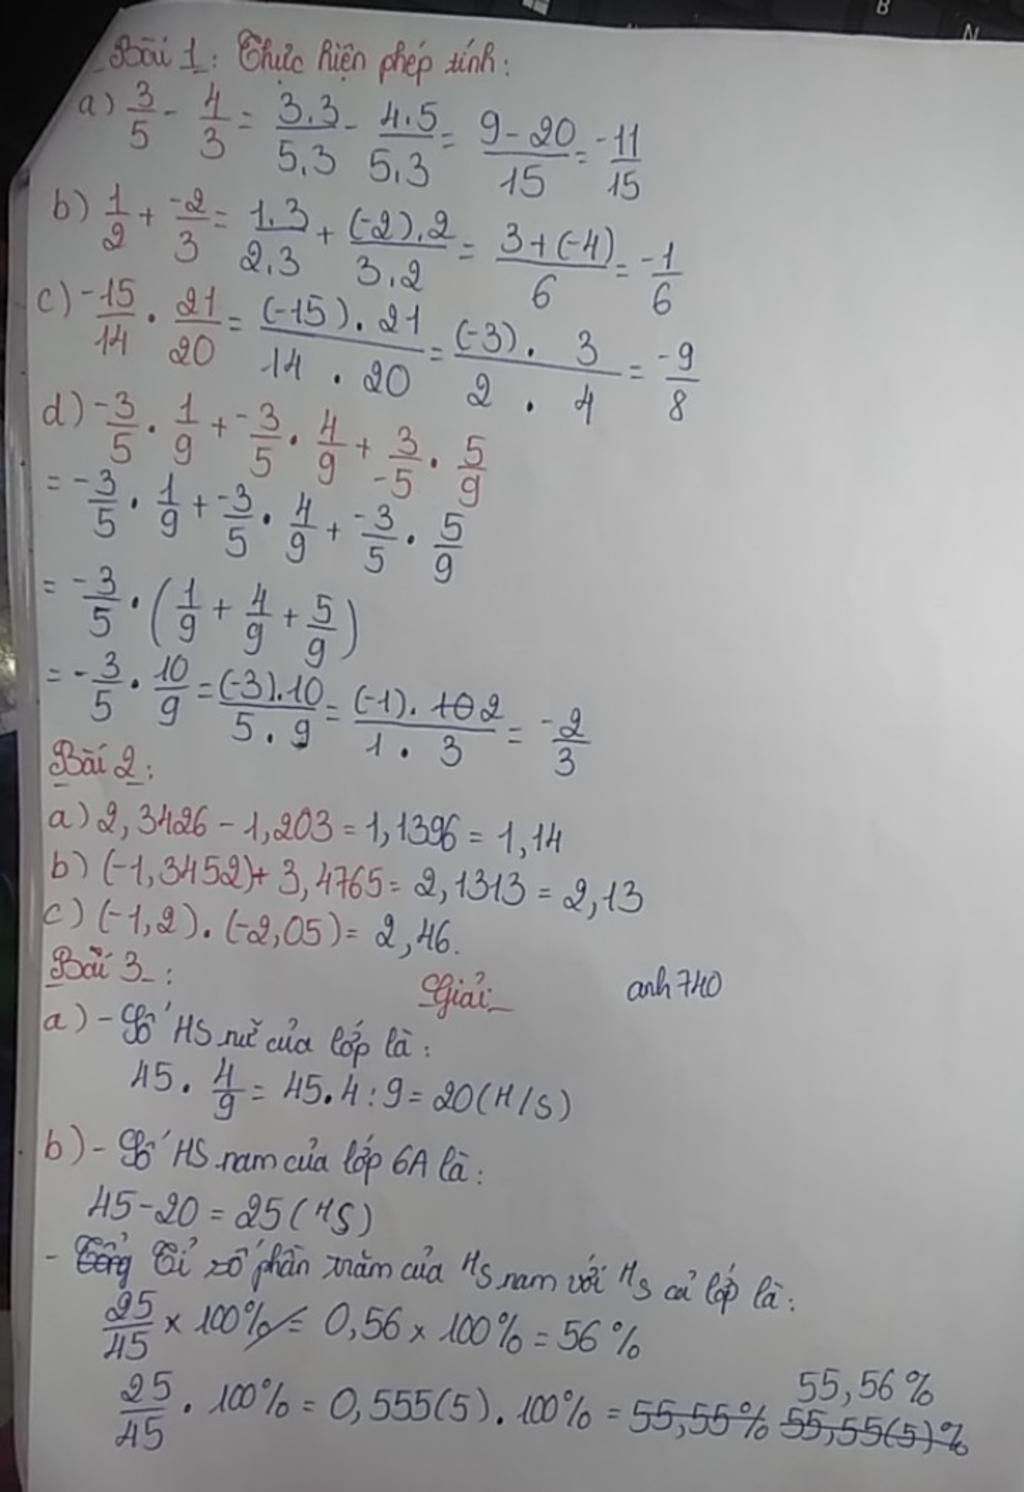 Bài 1: Thực hiện phép tính:
a) 3/5 - 4/3 = 3.3/5.3 - 4.5/5.3 = 9-20/15 = -11/15
b) 1/2 + -2/3 = 1.3/2.3 + (-2).2/3.2 = 3+(-4)/6 = -1/6
c) -15/14 . 21/20 = (-15).21/14.20 = (-3).3/2.4 = -9/8
d) -3/5 . 1/9 + -3/5 . 4/9 + 3/-5 . 5/9
= -3/5 . 1/9 + -3/5 . 4/9 + -3/5 . 5/9
= -3/5 . (1/9 + 4/9 + 5/9)
= -3/5 . 10/9 = (-3).10/5.9 = (-1).10 2/1.3 = -2/3
Bài 2:
a) 2,3426 - 1,203 = 1,1396 = 1,14
b) (-1,3452)+ 3,4765 = 2,1313 = 2,13
c) (-1,2).(-2,05) = 2,46.
Bài 3:
Giải
anh740
a) - Số HS nữ của lớp là:
45. 4/9 = 45.4:9 = 20(H/S)
b) - Số HS nam của lớp 6A là:
45-20 = 25(HS)
- Tổng Tỉ số phần trăm của HS nam với HS cả lớp là:
25/45 x 100% = 0,56 x 100% = 56%
55,56%
25/45 . 100% = 0,555(5).100% = 55,55% 55,55(5)%
B
N